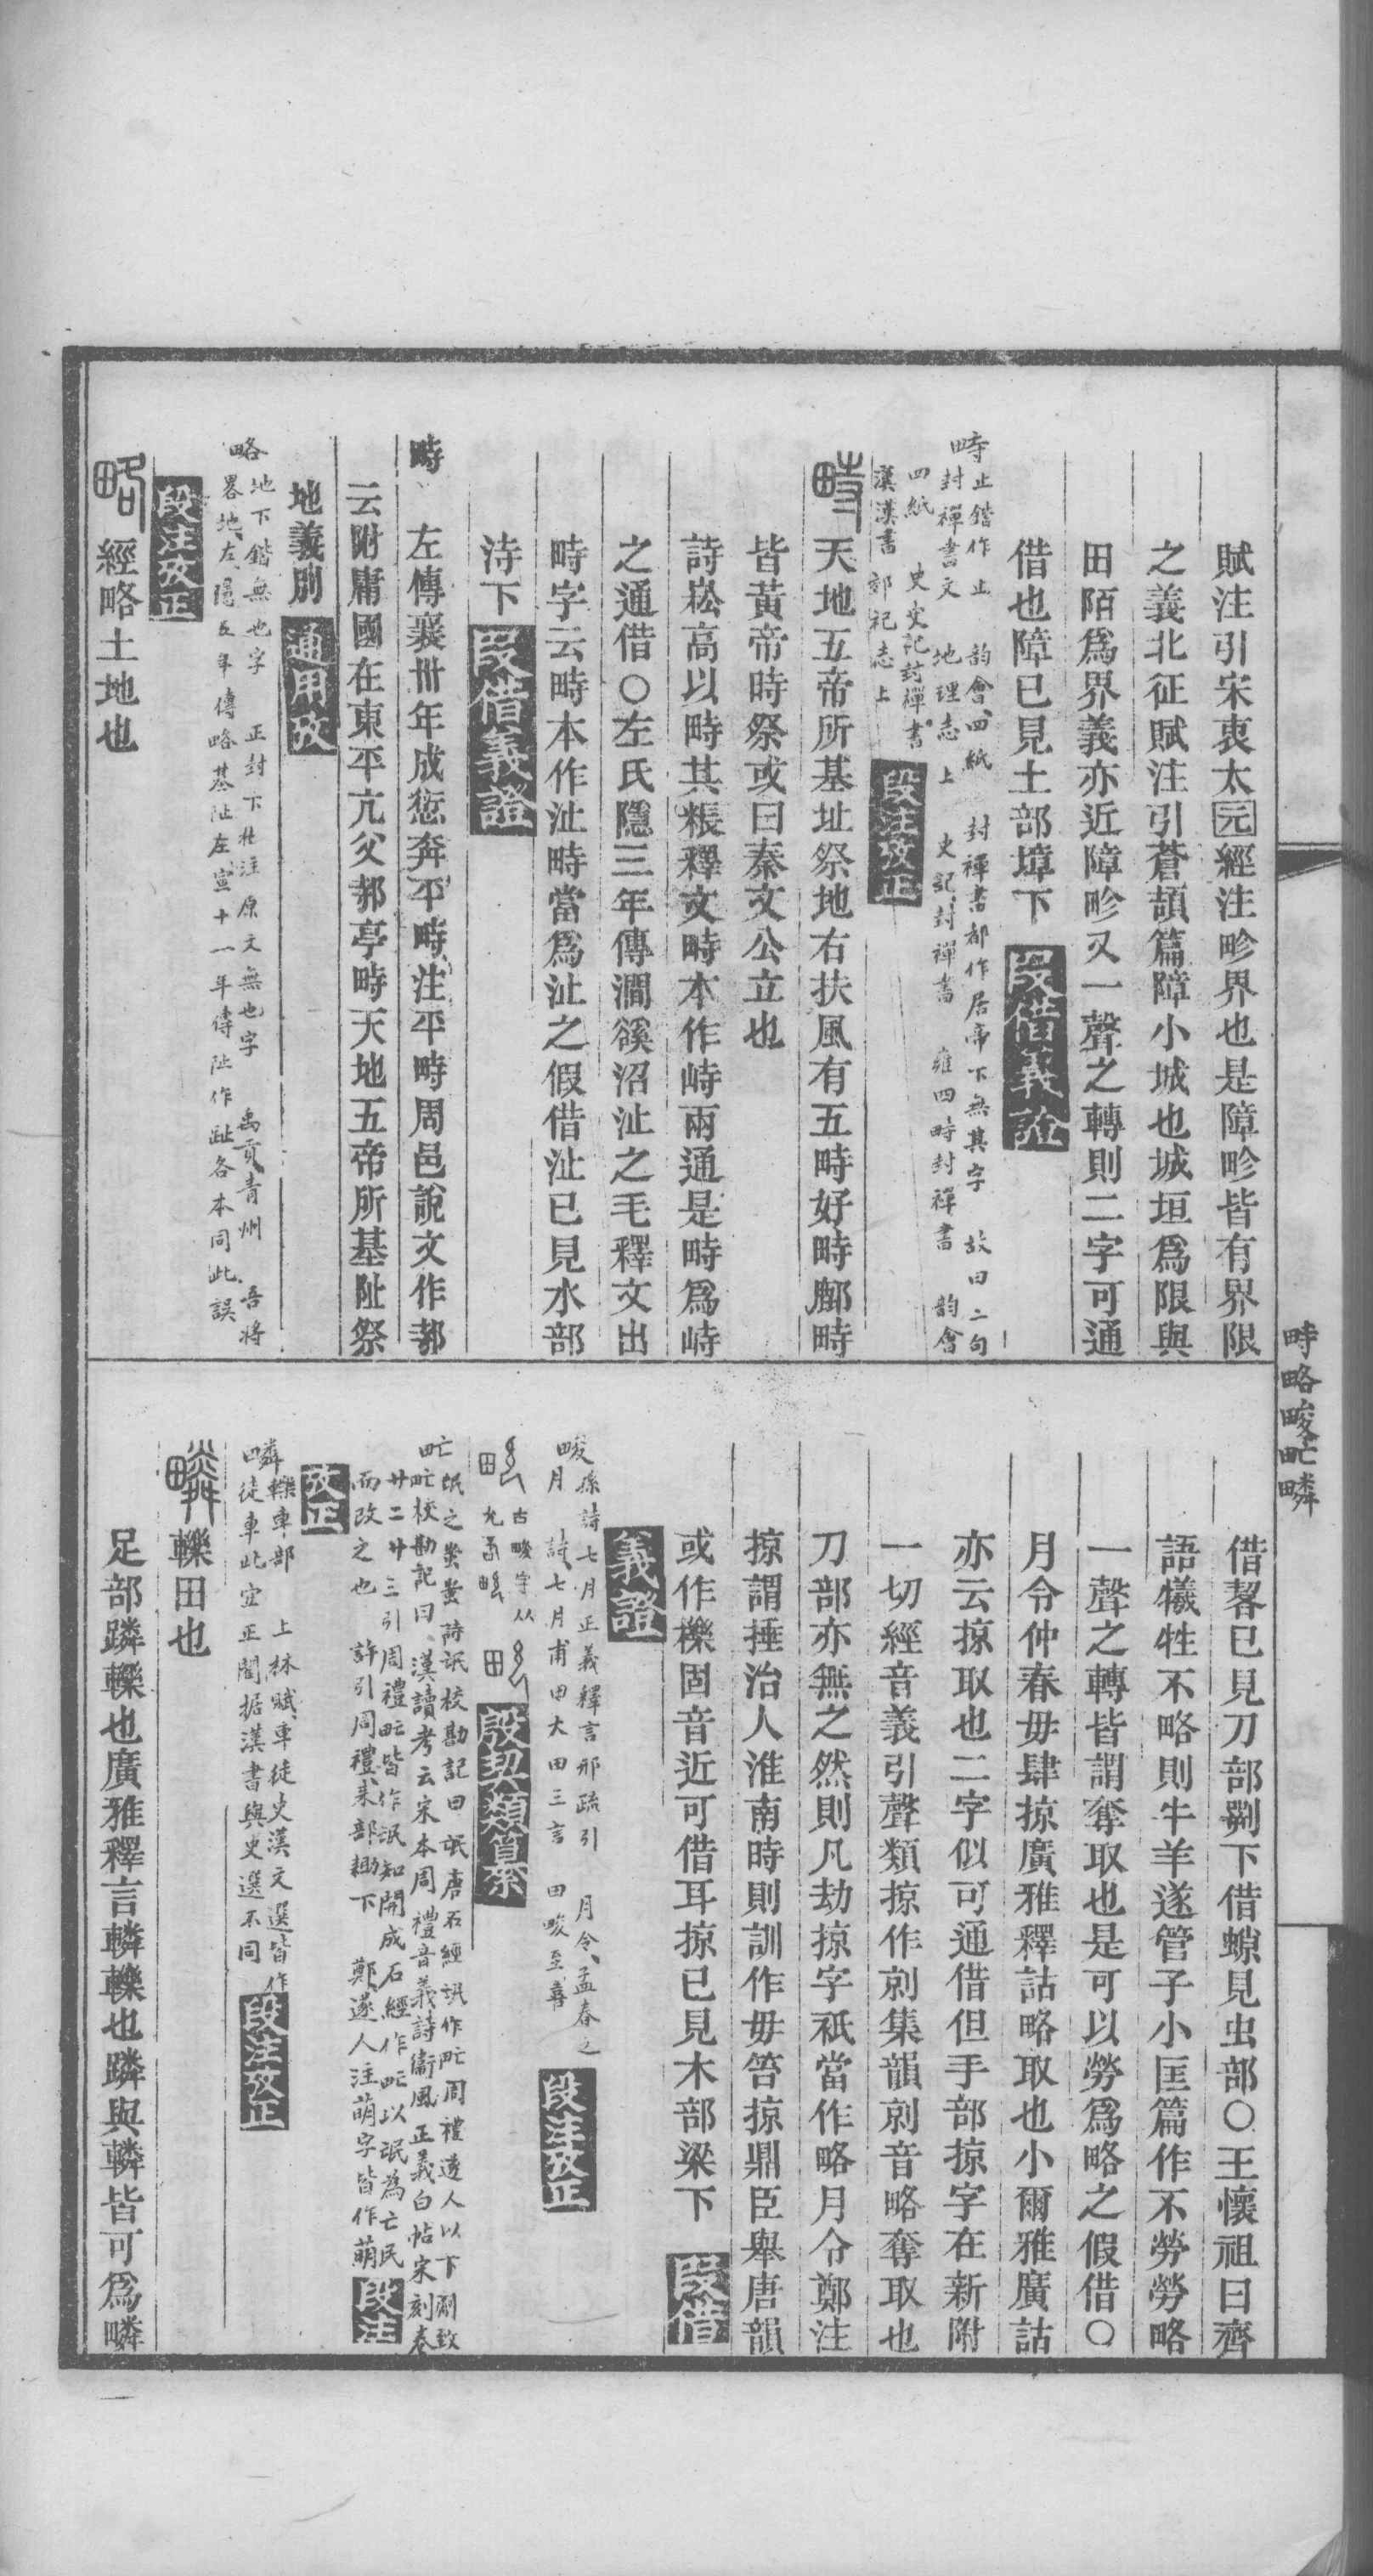 賦注引宋衷太元經注畛界也是障畛皆有界限
之義北征賦注引蒼頡篇障小城也城垣爲限與
田陌爲界義亦近障畛又一聲之轉則二字可通
借也障已見土部墇下 段借義證
畤止鍇作止 韵會四紙 封禪書都作居帝下無其字 故曰二句
封禪書文 地理志上 史記封禪書 雍四畤封禪書 韵會
四紙 史史記封禪書
漢漢書郊祀志上 段注攷正
畤 天地五帝所基址祭地右扶風有五畤好畤鄜畤
皆黃帝時祭或曰秦文公立也
詩崧高以畤其粻釋文畤本作峙兩通是畤爲峙
之通借〇左氏隱三年傳澗谿沼沚之毛釋文出
畤字云畤本作沚畤當爲沚之假借沚已見水部
洔下 段借義證
畤 左傳襄卅年成愆奔平畤注平畤周邑說文作邿
云附庸國在東平亢父邿亭畤天地五帝所基阯祭
地義別 通用攷
略地下鍇無也字 正封下杜注原文無也字 禹貢青州 吾將
畧地左隱五年傳略基阯左宣十一年傳阯作趾各本同此誤
段注攷正
略 經略土地也
借䂮已見刀部剠下借螏見虫部〇王懷祖曰齊
語犧牲不略則牛羊遂管子小匡篇作不勞勞略
一聲之轉皆謂奪取也是可以勞爲略之假借〇
月令仲春毋肆掠廣雅釋詁略取也小爾雅廣詁
亦云掠取也二字似可通借但手部掠字在新附
一切經音義引聲類掠作剠集韻剠音略奪取也
刀部亦無之然則凡劫掠字祇當作略月令鄭注
掠謂捶治人淮南時則訓作毋笞掠鼎臣舉唐韻
或作擽固音近可借耳掠已見木部梁下 段借
義證
畯孫詩七月正義釋言邢疏引 月令孟春之
月 詩七月甫田大田三言 田畯至喜 段注攷正
古畯字从
田允 殷契類纂
甿氓之蚩蚩詩氓校勘記曰氓唐石經氓作甿周禮遂人以下劑致
甿校勘記曰漢讀考云宋本周禮音義詩衞風正義白帖宋刻卷
廿二廿三引周禮甿皆作氓知開成石經作甿以氓為亡民
而改之也 許引周禮耒部耡下 鄭遂人注萌字皆作萌 段注
攷正
疄轢車部 上林賦車徒史漢文選皆作
徒車此宜正閣据漢書與史選不同 段注攷正
疄 轢田也
足部蹸轢也廣雅釋言轔轢也蹸與轔皆可爲疄
畤略畯甿疄